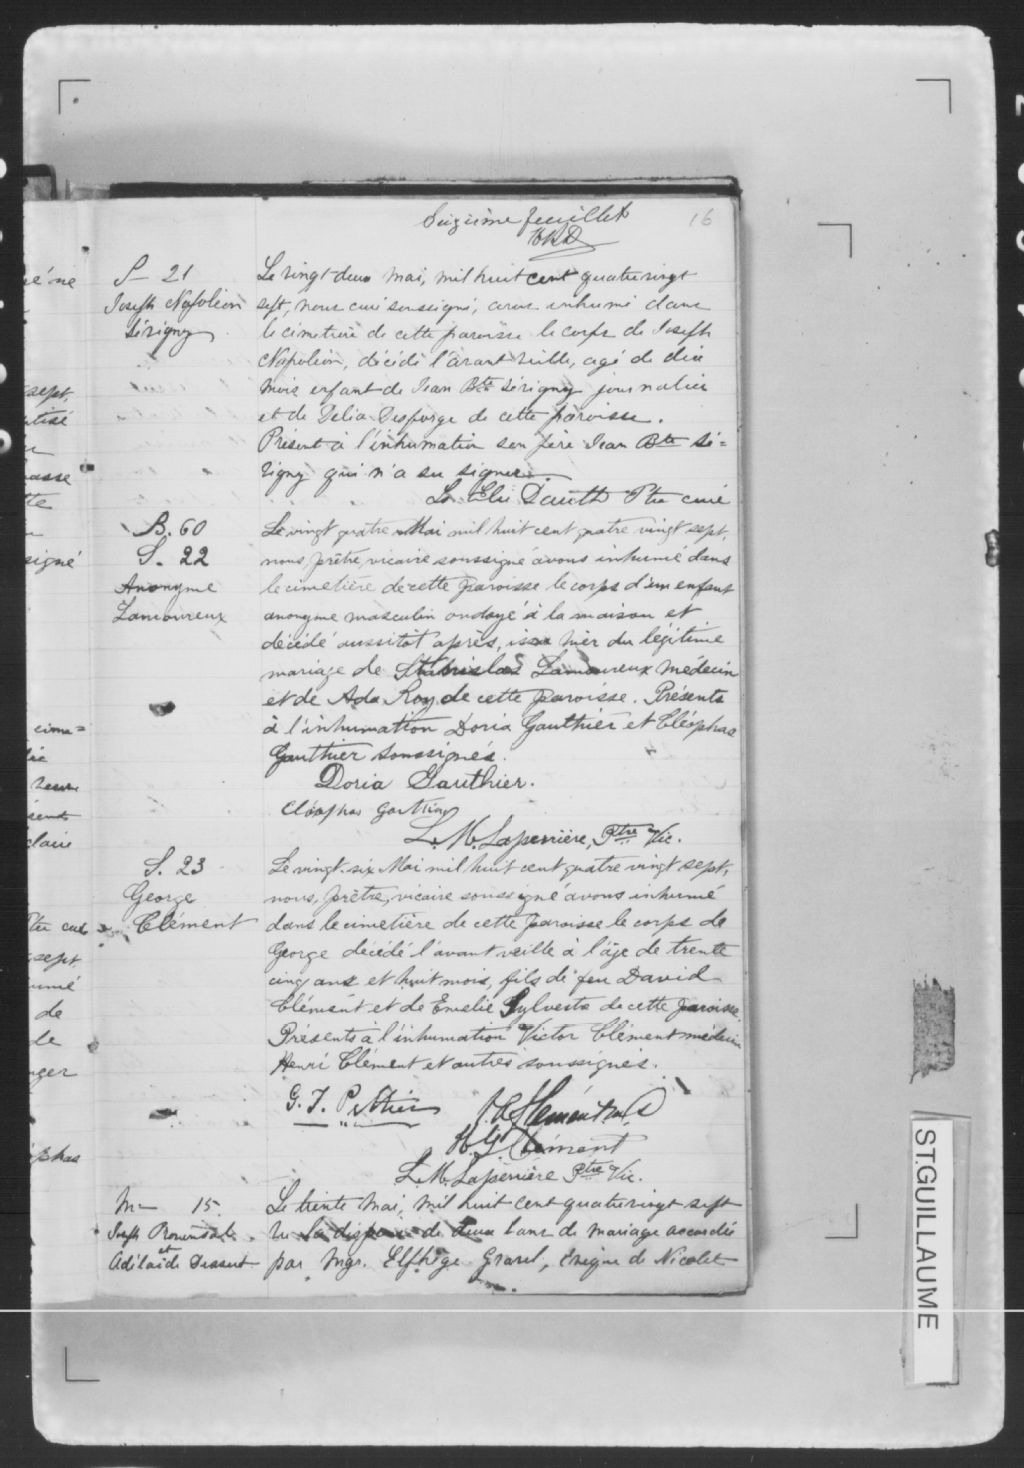 Seizième feuillet
16
S— 21
Joseph Napoléon
Sévigny
Le vingt deux mai, mil huit cent quatrevingt
sept, nous curé soussigné, avons inhumé dans
le cimetière de cette paroisse le corps de Joseph
Napoléon, décédé l'avant veille, agé de dix
mois enfant de Jean Bte Sévigny journalier
et de Delia Desforge de cette paroisse.
Présent à l'inhumation son père Jean Bte Sé=
vigny qui n'a su signer.
Ls Elie Dauth Ptre curé
B. 60
S. 22
Anonyme
Lamoureux
Le vingt quatre Mai mil huit cent quatre vingt sept,
nous, prêtre, vicaire soussigné avons inhumé dans
le cimetière de cette paroisse le corps d'un enfant
anonyme masculin ondoyé à la maison et
décédé aussitôt après, issu hier du légitime
mariage de Stanislas Lamoureux médecin
et de Ada Roy de cette paroisse. Présents
à l'inhumation Doria Gauthier et Cléophas
Gauthier soussignés.
Doria Gauthier.
Cléophas Gauthier
L. M. Laperrière, Ptre Vic.
S. 23
George
Clément
Le vingt-six Mai mil huit cent quatre vingt sept,
nous, prêtre, vicaire soussigné avons inhumé
dans le cimetière de cette paroisse le corps de
George décédé l'avant veille à l'âge de trente
cinq ans et huit mois, fils de feu David
Clément et de Emelie Sylvestre de cette paroisse
Présents à l'inhumation Victor Clément médecin
Henri Clément et autres soussignés.
G. J. Peltier
Clément
H. G. Clément
L. M. Laperrière Ptre Vic.
M— 15.
Adélaïde Dessert
et
Le trente Mai, mil huit cent quatrevingt sept
vu la dispense de deux bans de mariage accordée
par Mgr. Elphège Gravel, Evêque de Nicolet
ST.GUILLAUME